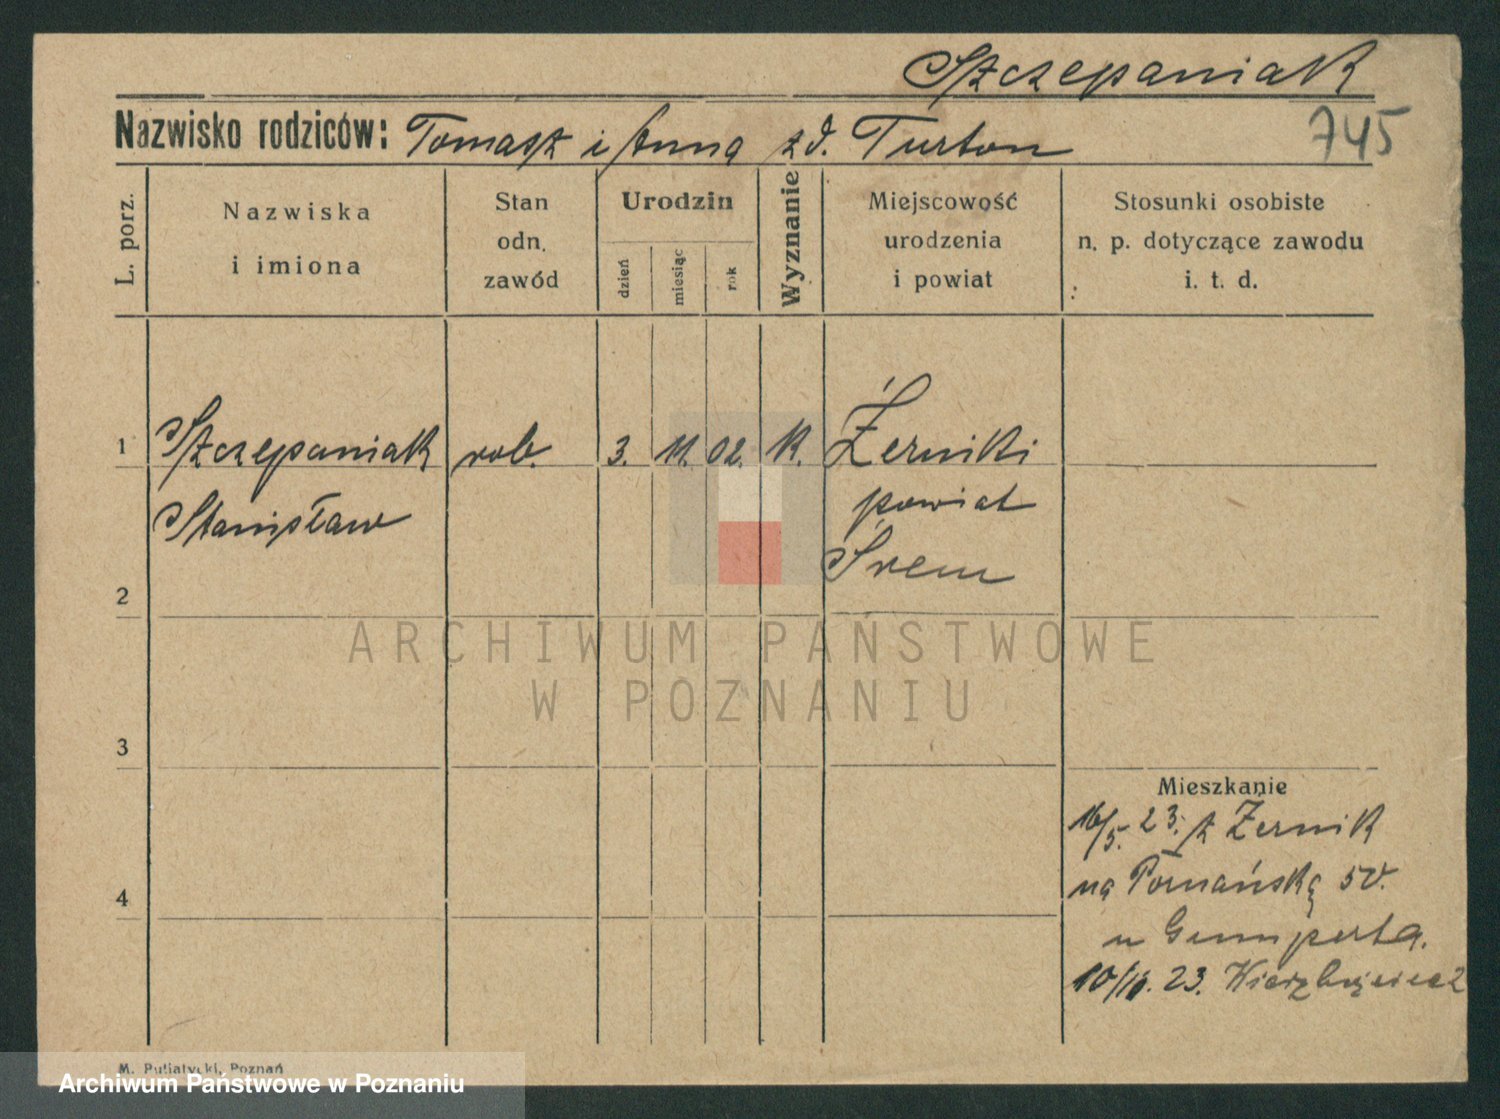 Szczepaniak
Nazwisko rodziców: Tomasz i Anna zd. Turton
745
L. porz.
Nazwiska
i imiona
Stan
odn.
zawód
Urodzin
dzień
miesiąc
rok
Wyznanie
Miejscowość
urodzenia
i powiat
Stosunki osobiste
n. p. dotyczące zawodu
i. t. d.
1 Szczepaniak rob. 3. 11. 02. K. Żerniki
Stanisław
powiat
Śrem
2
3
4
ARCHIWUM PAŃSTWOWE
W POZNANIU
Mieszkanie
16/5. 23. z Żernik
na Poznańską 50.
u Gumperta.
23.
M. Putiatycki, Poznań
Archiwum Państwowe w Poznaniu